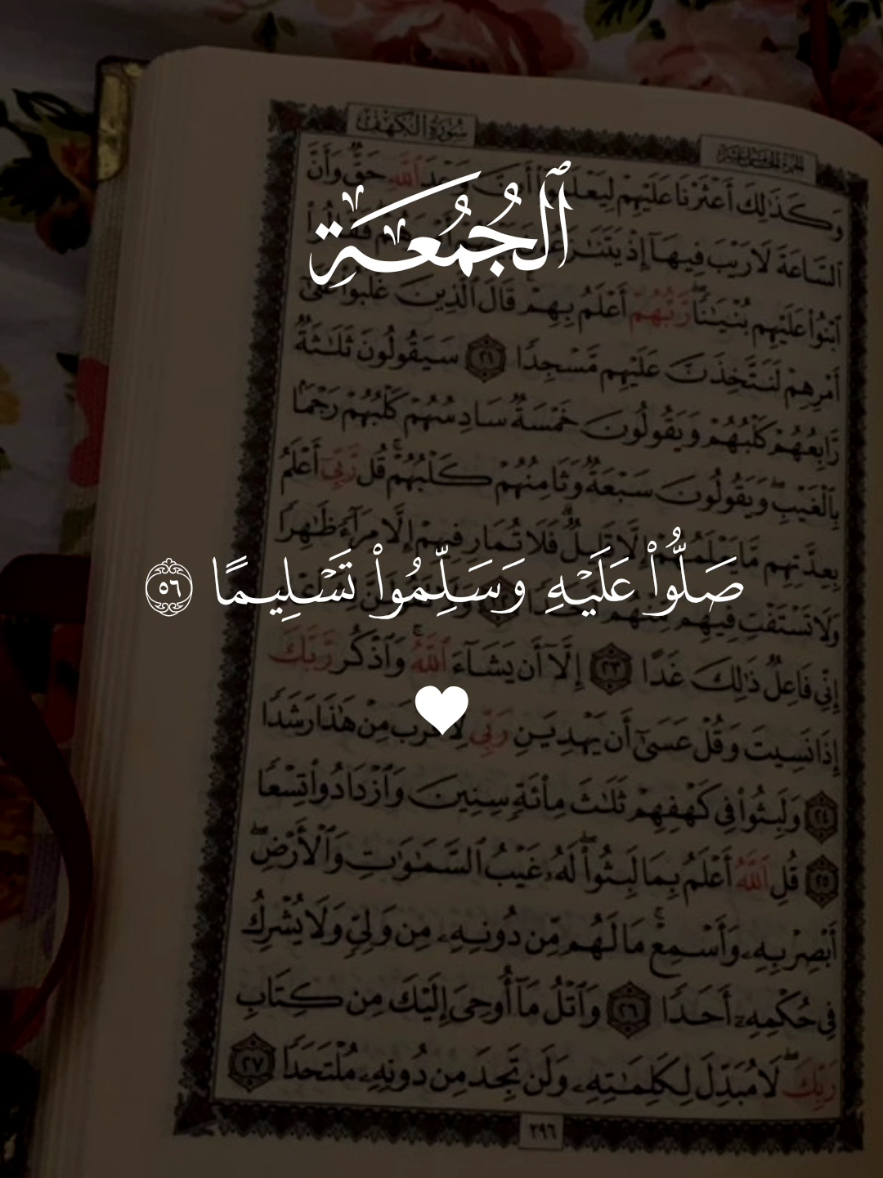 الجزء الخامس عشر
سُورَةُ الكَهْفِ
وَكَذَٰلِكَ أَعْثَرْنَا عَلَيْهِمْ وَعْدَ ٱللَّهِ حَقٌّ وَأَنَّ
ٱلْجُمُعَةِ
ٱلسَّاعَةَ لَا رَيْبَ فِيهَآ إِذْ
ٱبْنُوا۟ عَلَيْهِم بُنْيَٰنًا ۖ رَّبُّهُمْ أَعْلَمُ بِهِمْ ۚ قَالَ ٱلَّذِينَ غَلَبُوا۟ عَلَىٰٓ
أَمْرِهِمْ لَنَتَّخِذَنَّ عَلَيْهِم مَّسْجِدًا ٢١ سَيَقُولُونَ ثَلَٰثَةٌ
رَّابِعُهُمْ كَلْبُهُمْ وَيَقُولُونَ خَمْسَةٌ سَادِسُهُمْ كَلْبُهُمْ رَجْمًۢا
بِٱلْغَيْبِ ۖ وَيَقُولُونَ سَبْعَةٌ وَثَامِنُهُمْ كَلْبُهُمْ ۚ قُل رَّبِّىٓ أَعْلَمُ
بِعِدَّتِهِم مَّا يَعْلَمُهُمْ إِلَّا قَلِيلٌ ۗ فَلَا تُمَارِ فِيهِمْ إِلَّا مِرَآءً ظَٰهِرًا
صَلُّوا۟ عَلَيْهِ وَسَلِّمُوا۟ تَسْلِيمًا ٥٦
وَلَا تَسْتَفْتِ فِيهِم
إِنِّى فَاعِلٌ ذَٰلِكَ غَدًا ٢٣ إِلَّآ أَن يَشَآءَ ٱللَّهُ ۚ وَٱذْكُر رَّبَّكَ
إِذَا نَسِيتَ وَقُلْ عَسَىٰٓ أَن يَهْدِيَنِ رَبِّى لِأَقْرَبَ مِنْ هَٰذَا رَشَدًا
٢٤ وَلَبِثُوا۟ فِى كَهْفِهِمْ ثَلَٰثَ مِا۟ئَةٍ سِنِينَ وَٱزْدَادُوا۟ تِسْعًا
٢٥ قُلِ ٱللَّهُ أَعْلَمُ بِمَا لَبِثُوا۟ ۖ لَهُۥ غَيْبُ ٱلسَّمَٰوَٰتِ وَٱلْأَرْضِ ۖ
أَبْصِرْ بِهِۦ وَأَسْمِعْ ۚ مَا لَهُم مِّن دُونِهِۦ مِن وَلِىٍّ وَلَا يُشْرِكُ
فِى حُكْمِهِۦٓ أَحَدًا ٢٦ وَٱتْلُ مَآ أُوحِىَ إِلَيْكَ مِن كِتَابِ
رَبِّكَ ۖ لَا مُبَدِّلَ لِكَلِمَٰتِهِۦ وَلَن تَجِدَ مِن دُونِهِۦ مُلْتَحَدًا ٢٧
٢٩٦